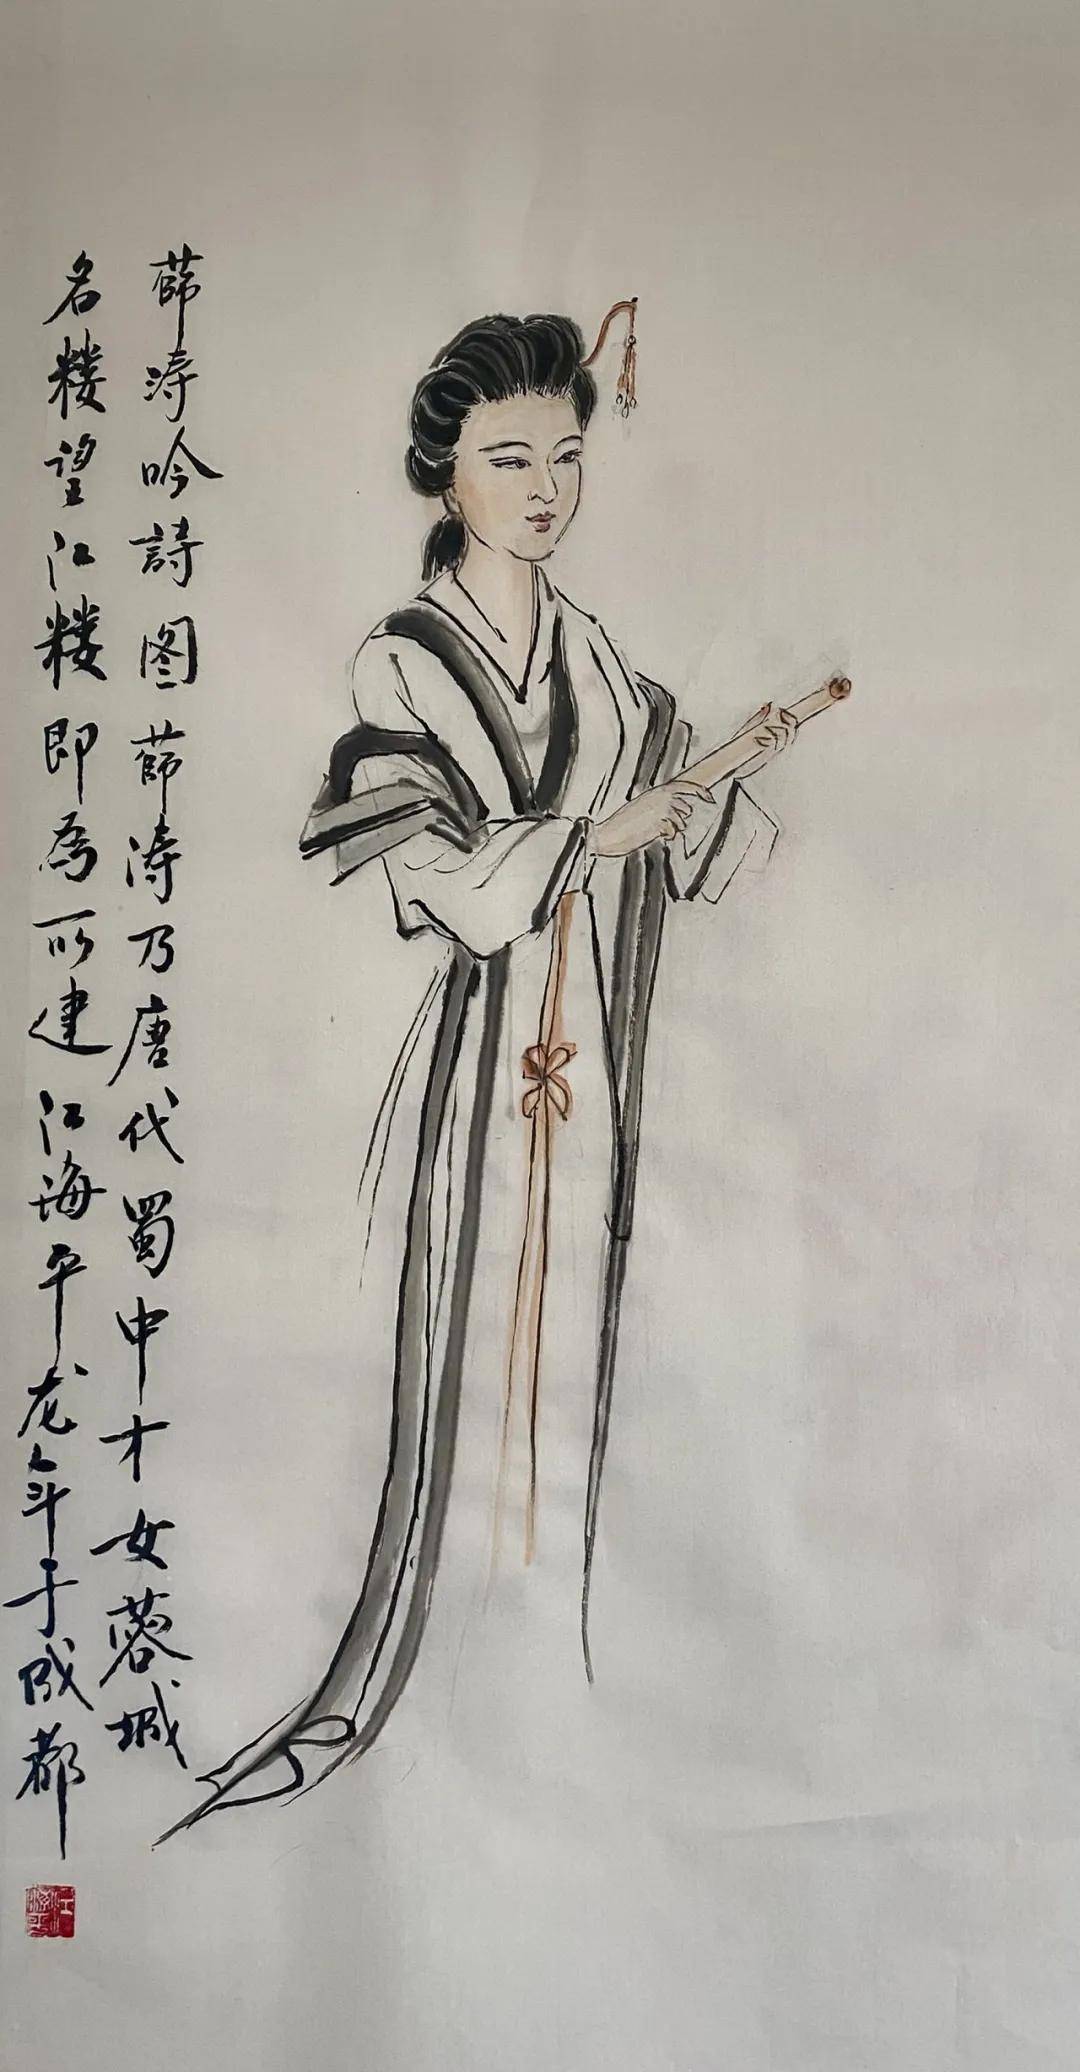 薛涛吟詩图薛涛乃唐代蜀中才女蓉城
名楼望江楼即为所建江海平龙年于成都